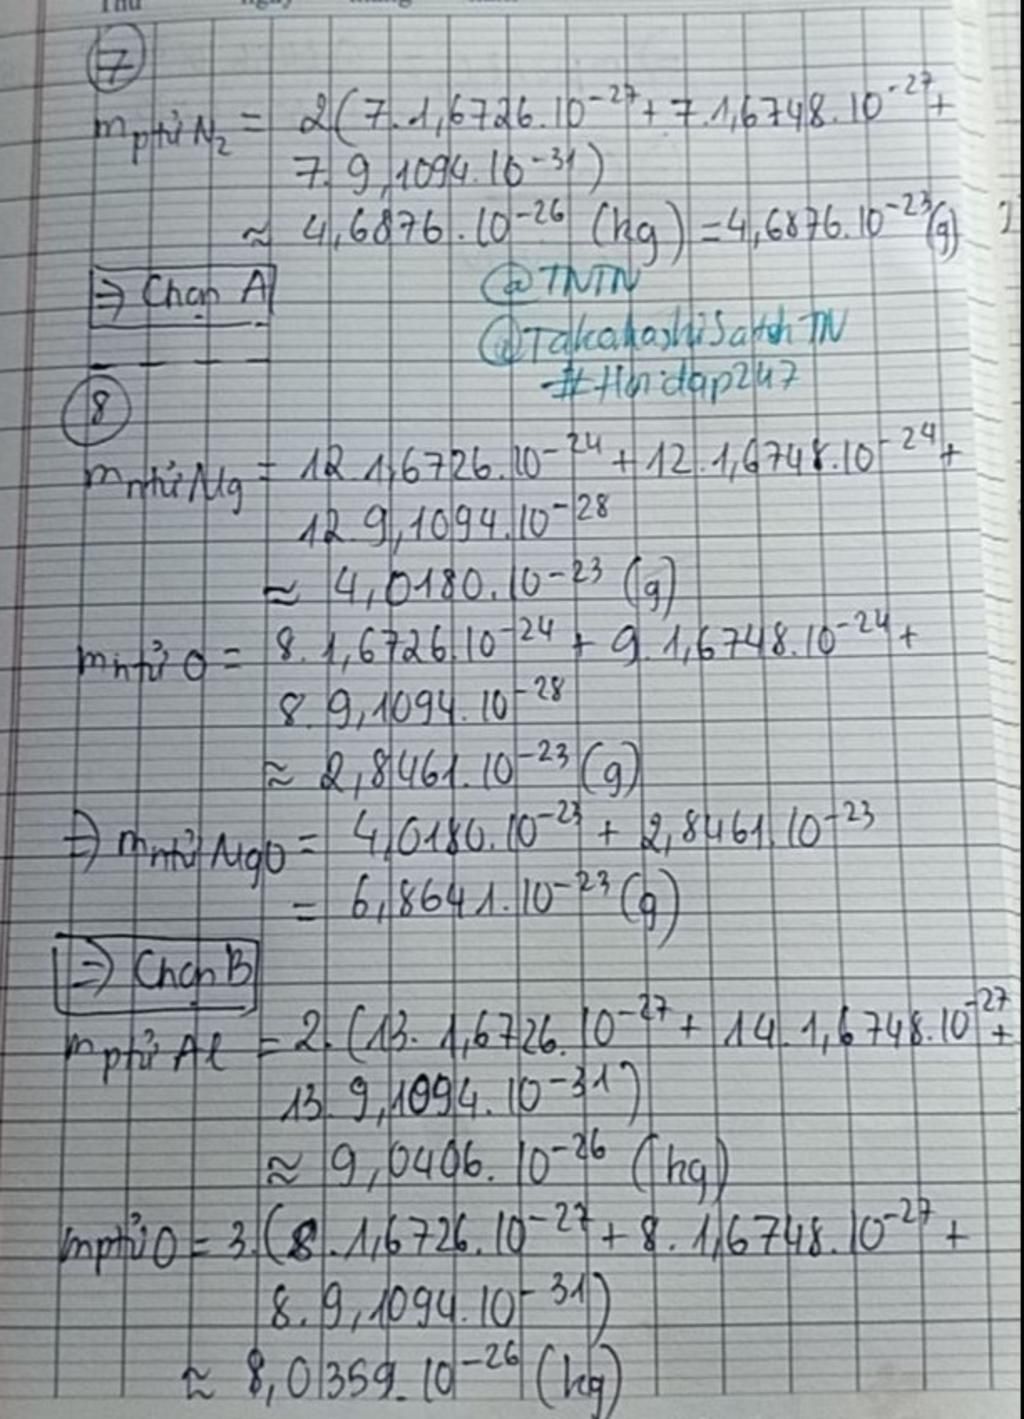 7
m ptử N₂ = 2(7.1,6726.10⁻²⁷ + 7.1,6748.10⁻²⁷ +
7.9,1094.10⁻³¹)
≈ 4,6876.10⁻²⁶ (kg) = 4,6876.10⁻²³(g)
⇒ Chọn A
@TNTN
@TakahashiSatohTN
#Hoidap247
8
m ntử Mg = 12.1,6726.10⁻²⁴ + 12.1,6748.10⁻²⁴ +
12.9,1094.10⁻²⁸
≈ 4,0180.10⁻²³ (g)
m ntử O = 8.1,6726.10⁻²⁴ + 9.1,6748.10⁻²⁴ +
8.9,1094.10⁻²⁸
≈ 2,8461.10⁻²³ (g)
⇒ m ntử MgO = 4,0180.10⁻²³ + 2,8461.10⁻²³
= 6,8641.10⁻²³ (g)
⇒ Chọn B
m ptử Al = 2.(13.1,6726.10⁻²⁷ + 14.1,6748.10⁻²⁷ +
13.9,1094.10⁻³¹)
≈ 9,0406.10⁻²⁶ (kg)
m ptử O = 3.(8.1,6726.10⁻²⁷ + 8.1,6748.10⁻²⁷ +
8.9,1094.10⁻³¹)
≈ 8,0359.10⁻²⁶ (kg)